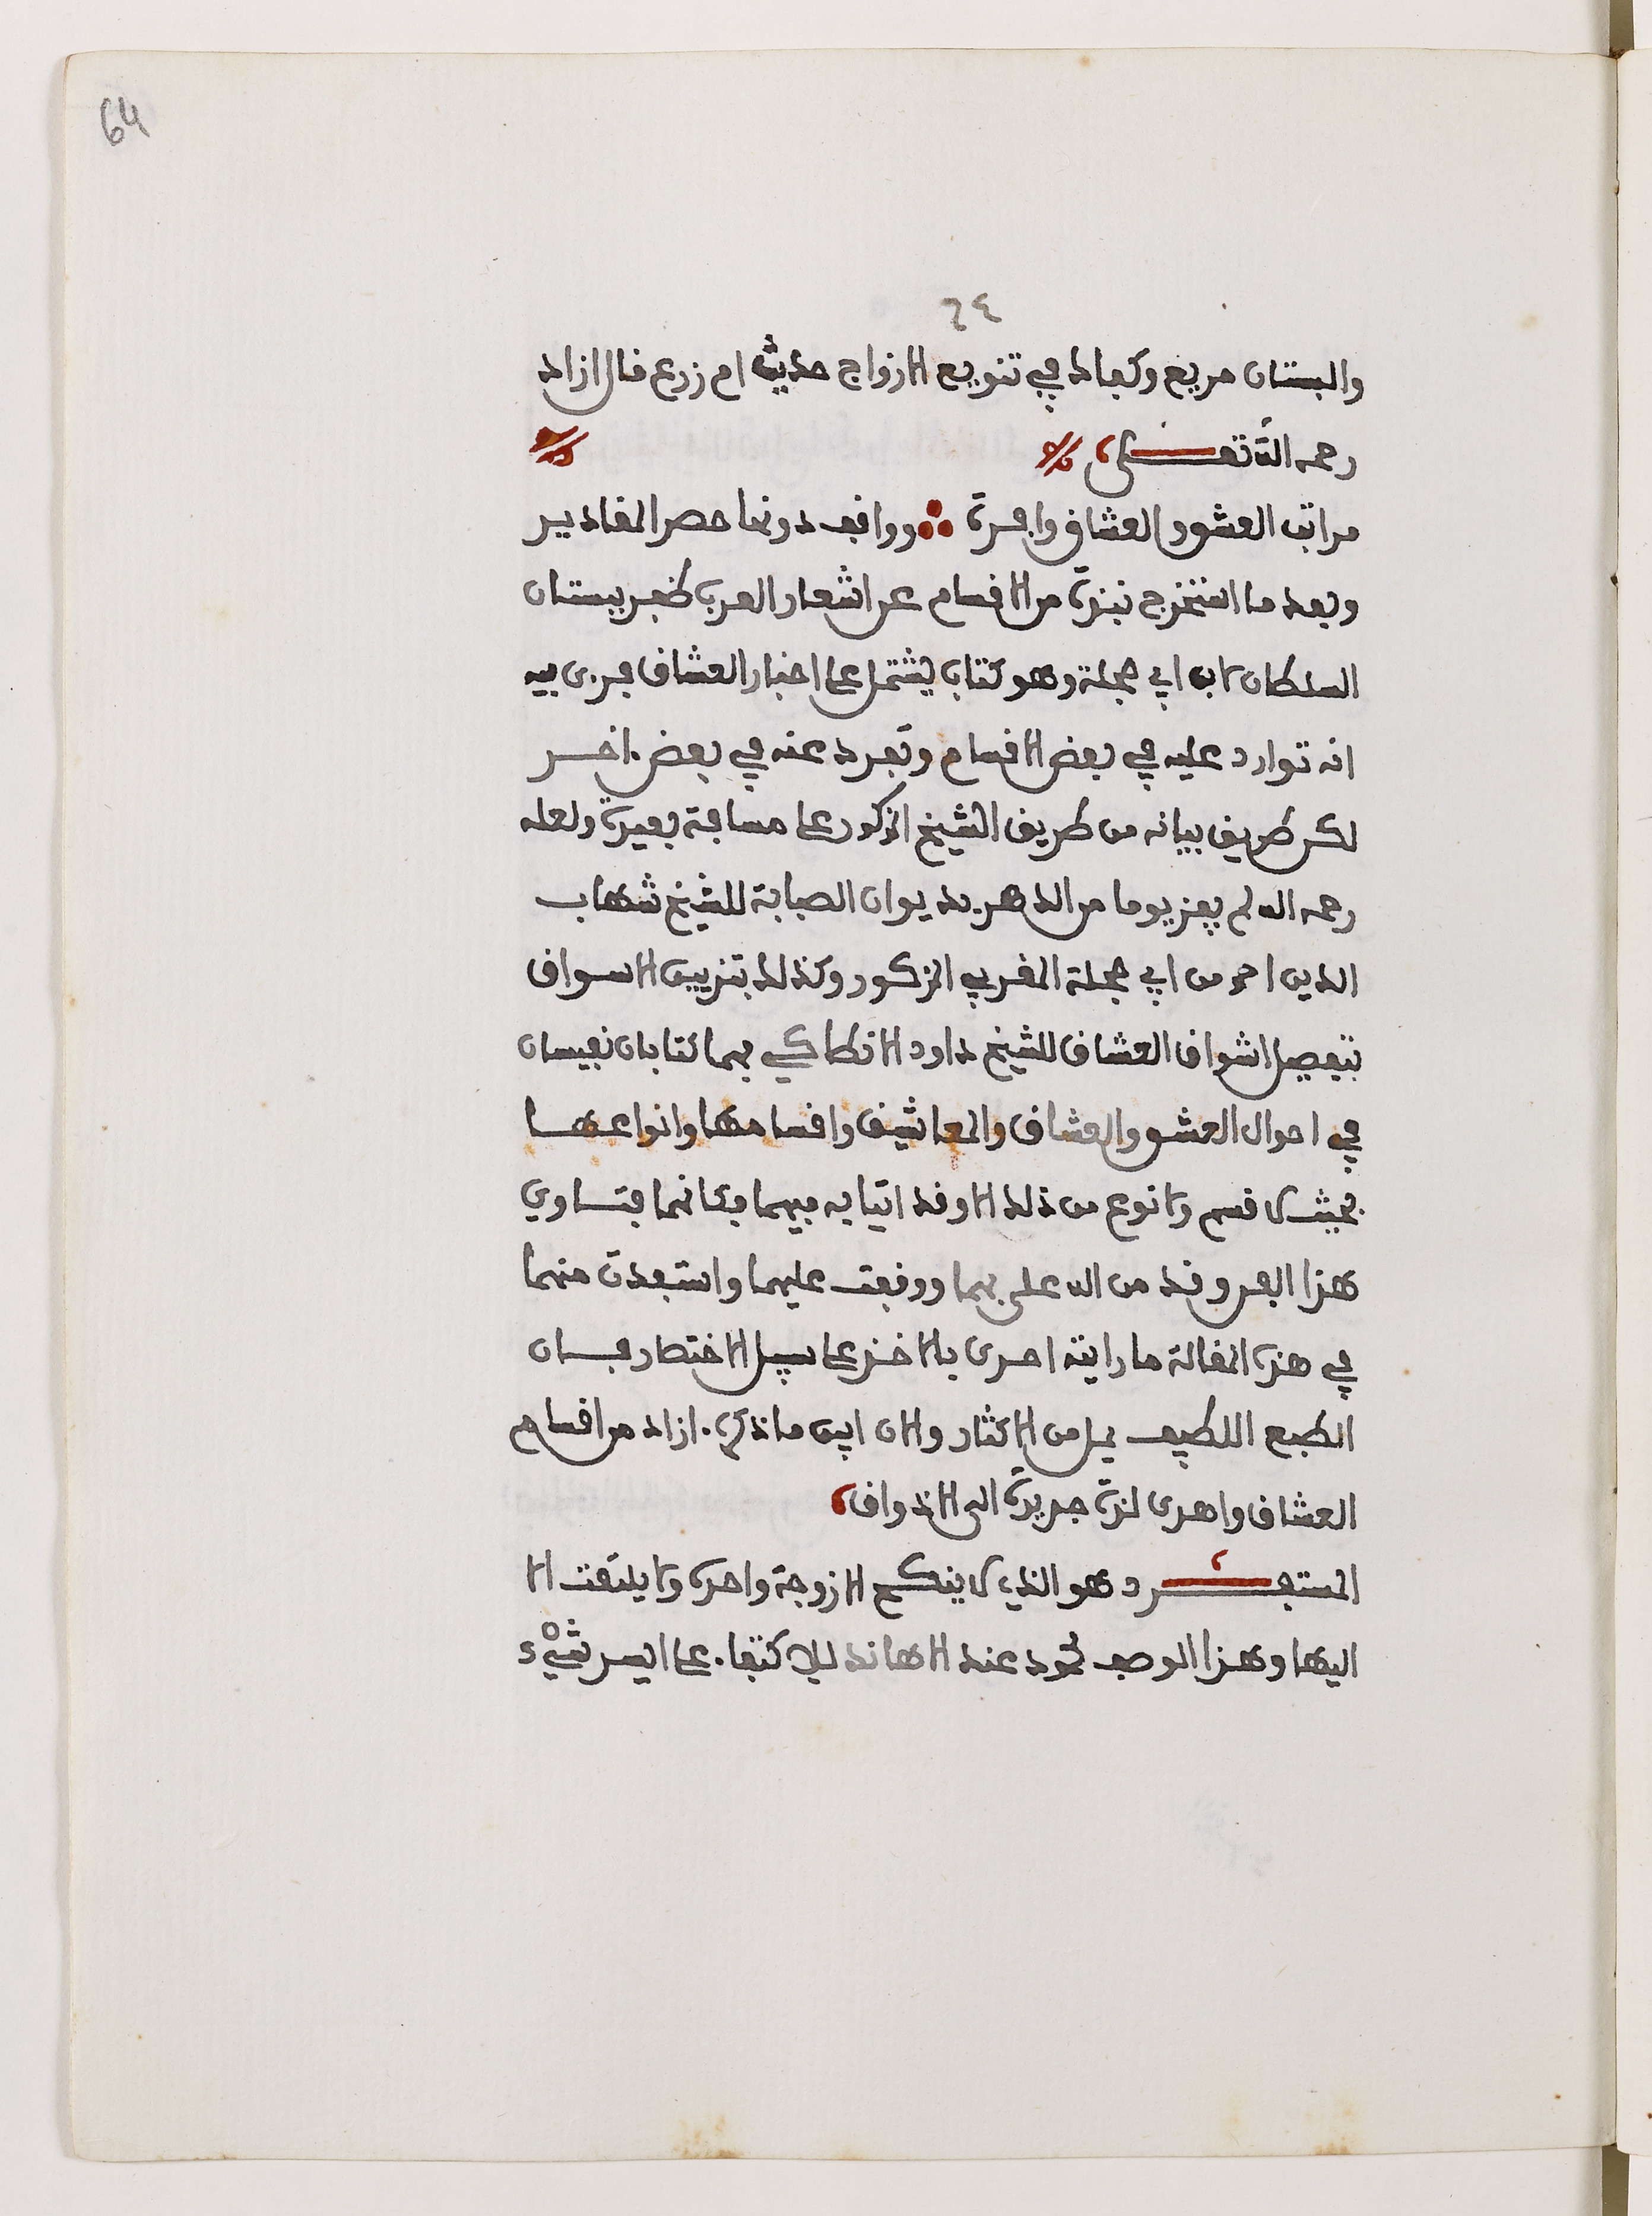 64
٦٤
والبستان مريع وكفاك في تنويع الازواج حديث ام زرع قال ازاد
رحمه الله تعـــلى
مراتب العشق والعشاق وافرة ووافت دونها حصر المقادير
وبعد ما استخرج نبذة من الاقسام عن اشعار العرب ظفر ببستان
السلطان لابن ابي حجلة وهو كتاب يشتمل على اخبار العشاق فرءى فيه
انه توارد عليه في بعض الاقسام وتفرد عنه في بعض ءاخـــر
لكن طريق بيانه من طريق الشيخ المذكور على مسافة بعيدة ولعله
رحمه الله لم يفز يوما من الدهر بديوان الصبابة للشيخ شهاب
الدين احمد بن ابي حجلة المغربي المذكور وكذلك بتزيين الاسواق
بتفصيل اشواق العشاق للشيخ داود الانطاكي فهما كتابان نفيسان
في احوال العشق والعشاق والمعاشيق واقسامها وانواعهـــا
بحيث لا قسم ولا نوع من ذلك الا وقد اتيا به فيهما فكانهما فتساوي
هذا الفن وقد من الله علي بهما ووقفت عليهما واستفدت منهما
في هذه المقالة ما رايته احرى بالاخذ على سبيل الاختصار فـــان
الطبع اللطيف يمل من الاكثار والان ابين ما ذكره ءازاد من اقسام
العشاق واهدى لذة جديدة الى الاذواق
المستفـــرد هو الذي لا ينكح الا زوجة واحدة ولا يلتفت الا
اليها وهذا الوصف محمود عند الاهاند للاكتفاء على ايسر شيْء